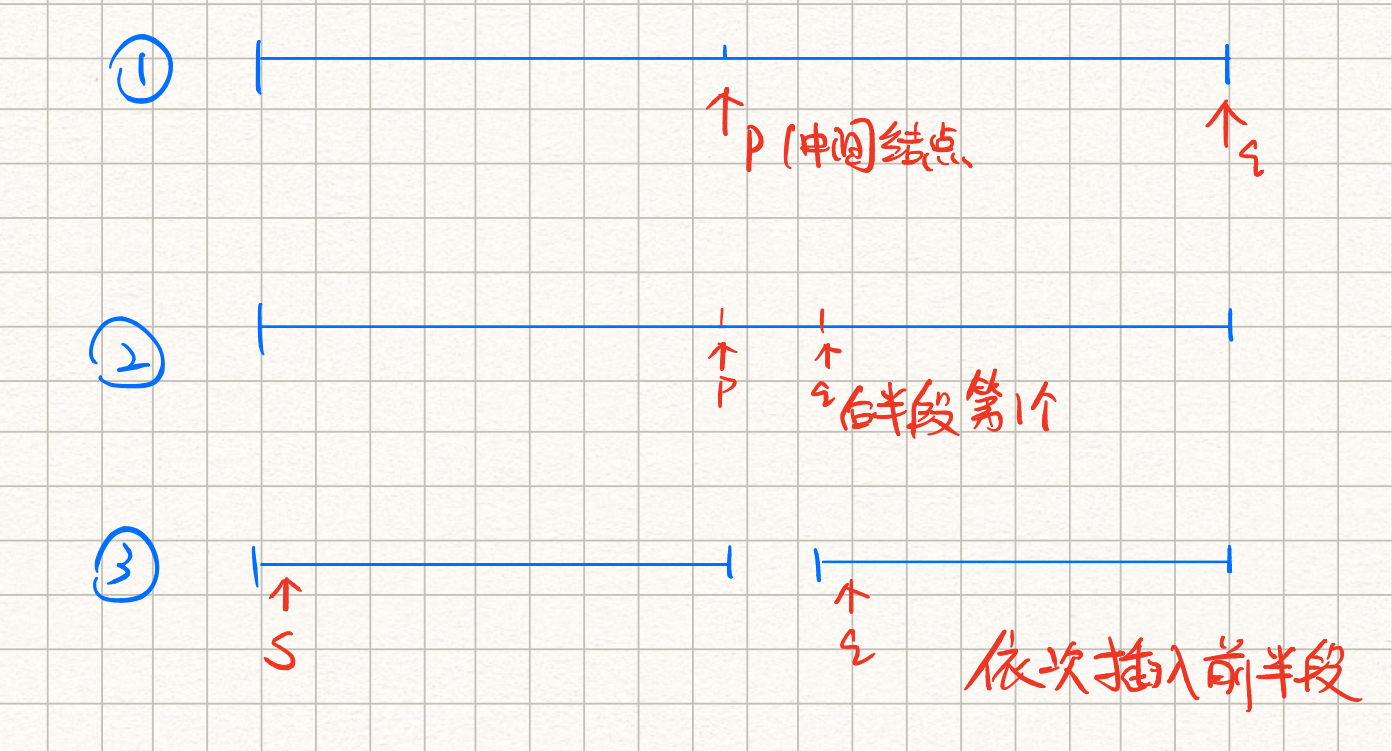 ①
P(中间)结点
q
②
P
q后半段第1个
③
S
q
依次插入前半段